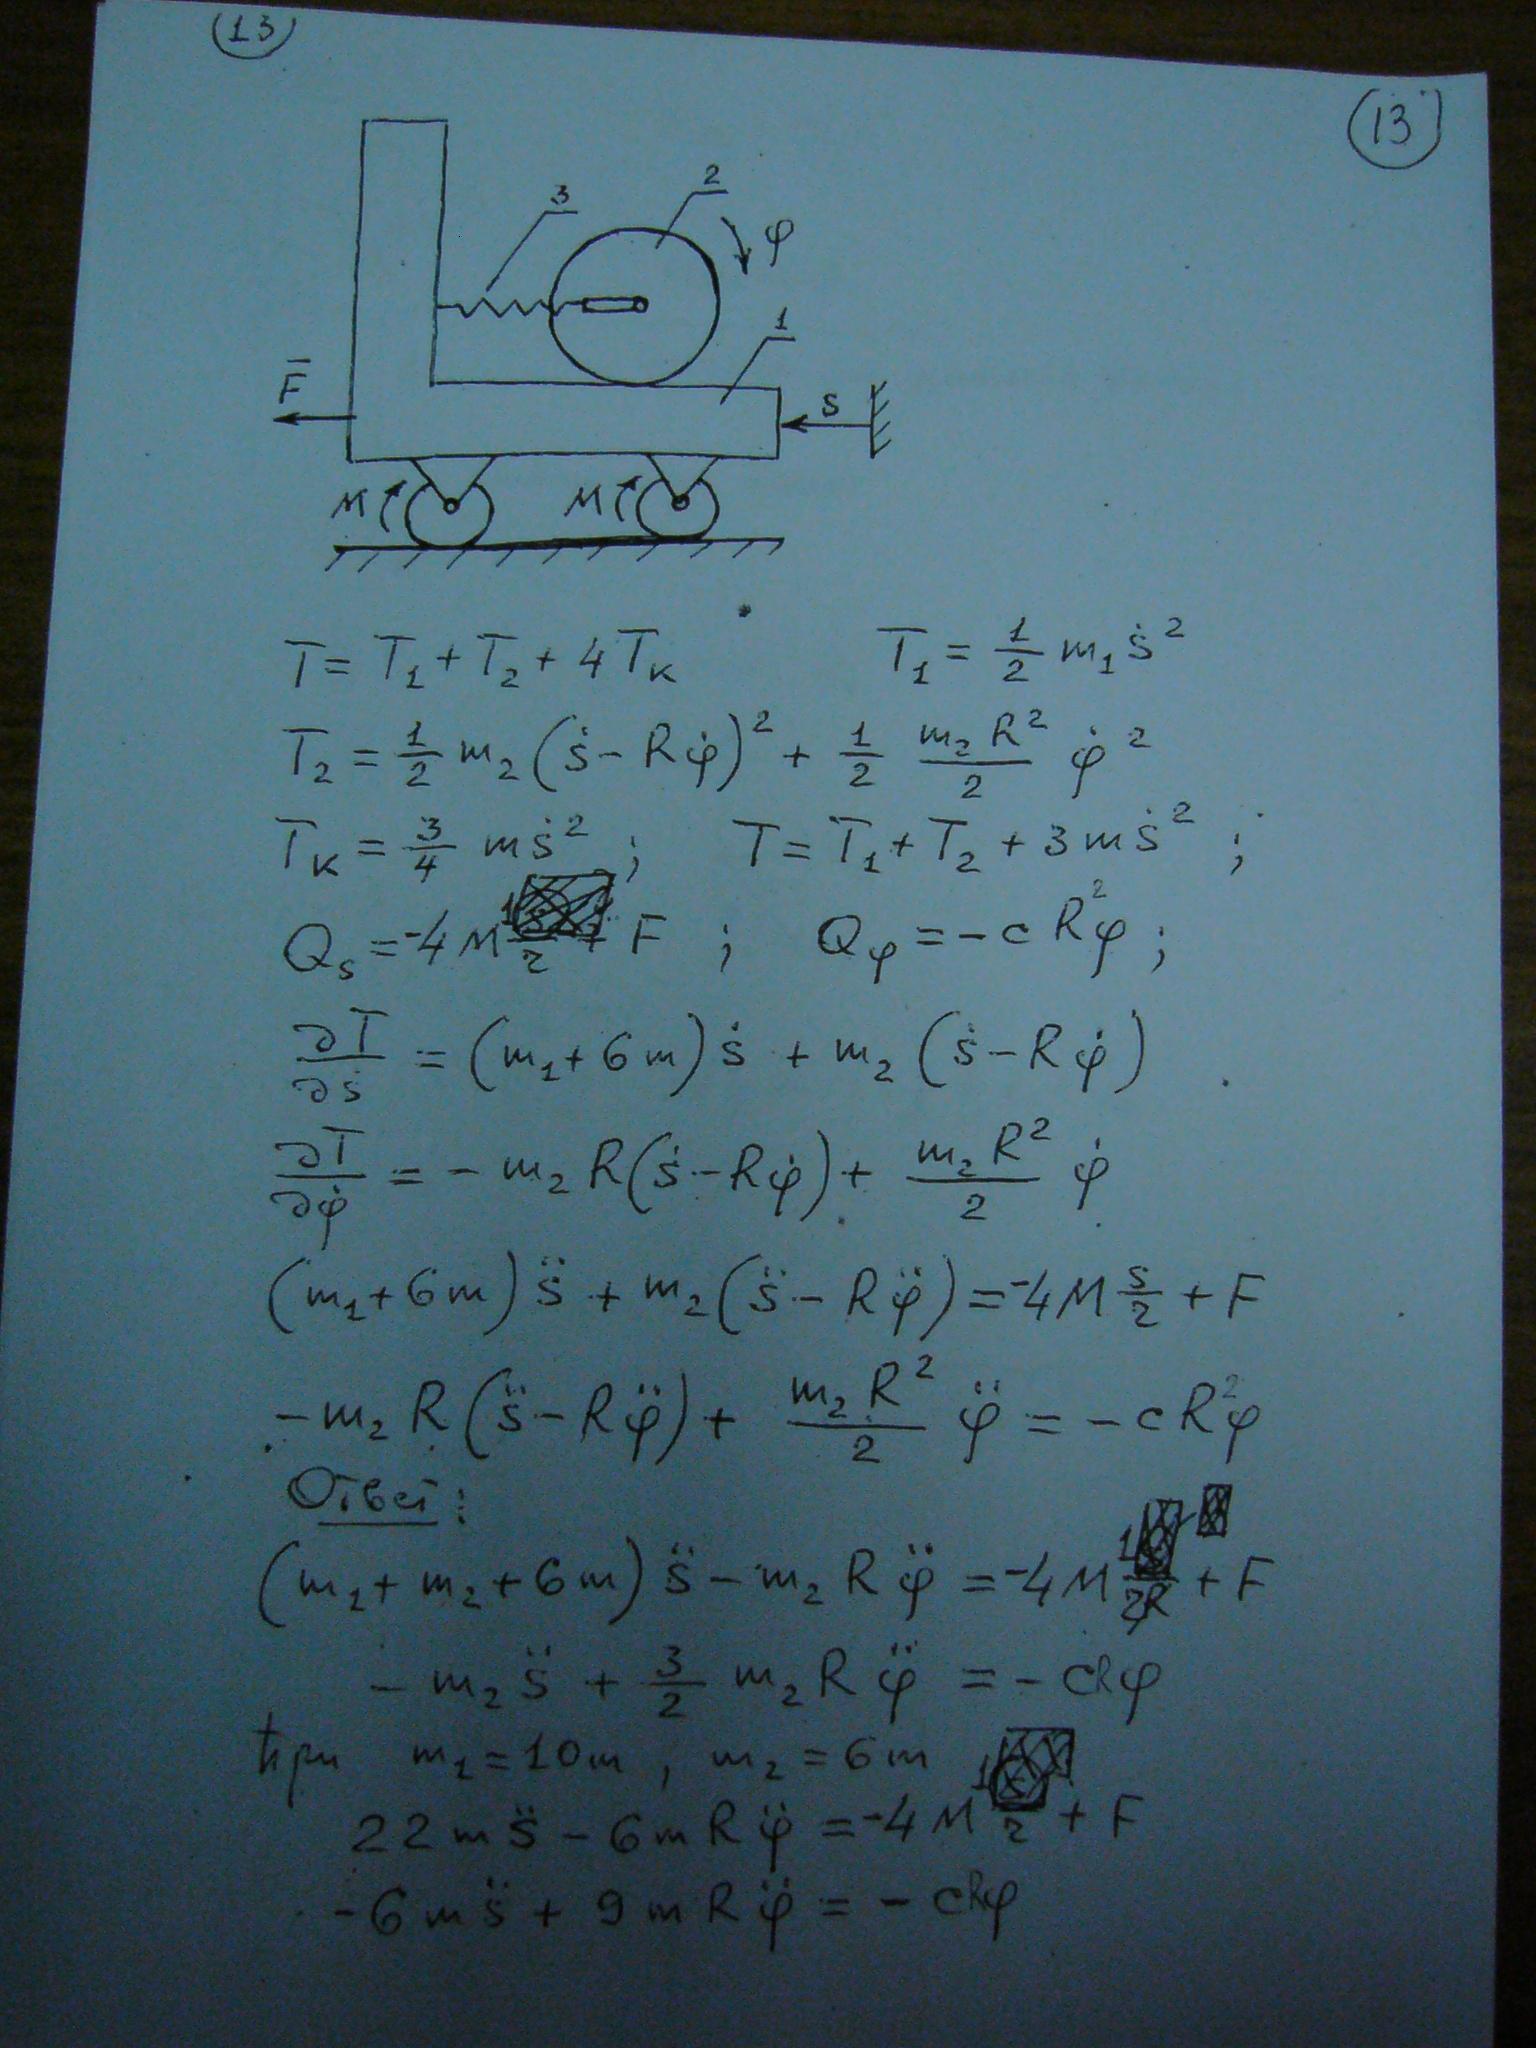 13
13
2
3
φ
1
F̄
s
M
M
T = T₁ + T₂ + 4Tк T₁ = 1/2 m₁ṡ²
T₂ = 1/2 m₂(ṡ − Rφ̇)² + 1/2 m₂R²/2 φ̇²
Tк = 3/4 mṡ² ; T = T₁ + T₂ + 3mṡ² ;
Qs = -4M 1/r + F ; Qφ = − cR²φ ;
∂T/∂ṡ = (m₁ + 6m)ṡ + m₂(ṡ − Rφ̇)
∂T/∂φ̇ = − m₂R(ṡ − Rφ̇) + m₂R²/2 φ̇
(m₁ + 6m)s̈ + m₂(s̈ − Rφ̈) = -4M s/r + F
− m₂R(s̈ − Rφ̈) + m₂R²/2 φ̈ = − cR²φ
Ответ:
(m₁ + m₂ + 6m)s̈ − m₂Rφ̈ = -4M 1/r + F
− m₂s̈ + 3/2 m₂Rφ̈ = − cRφ
при m₁ = 10m , m₂ = 6m
22ms̈ − 6mRφ̈ = -4M 1/r + F
-6ms̈ + 9mRφ̈ = − cRφ